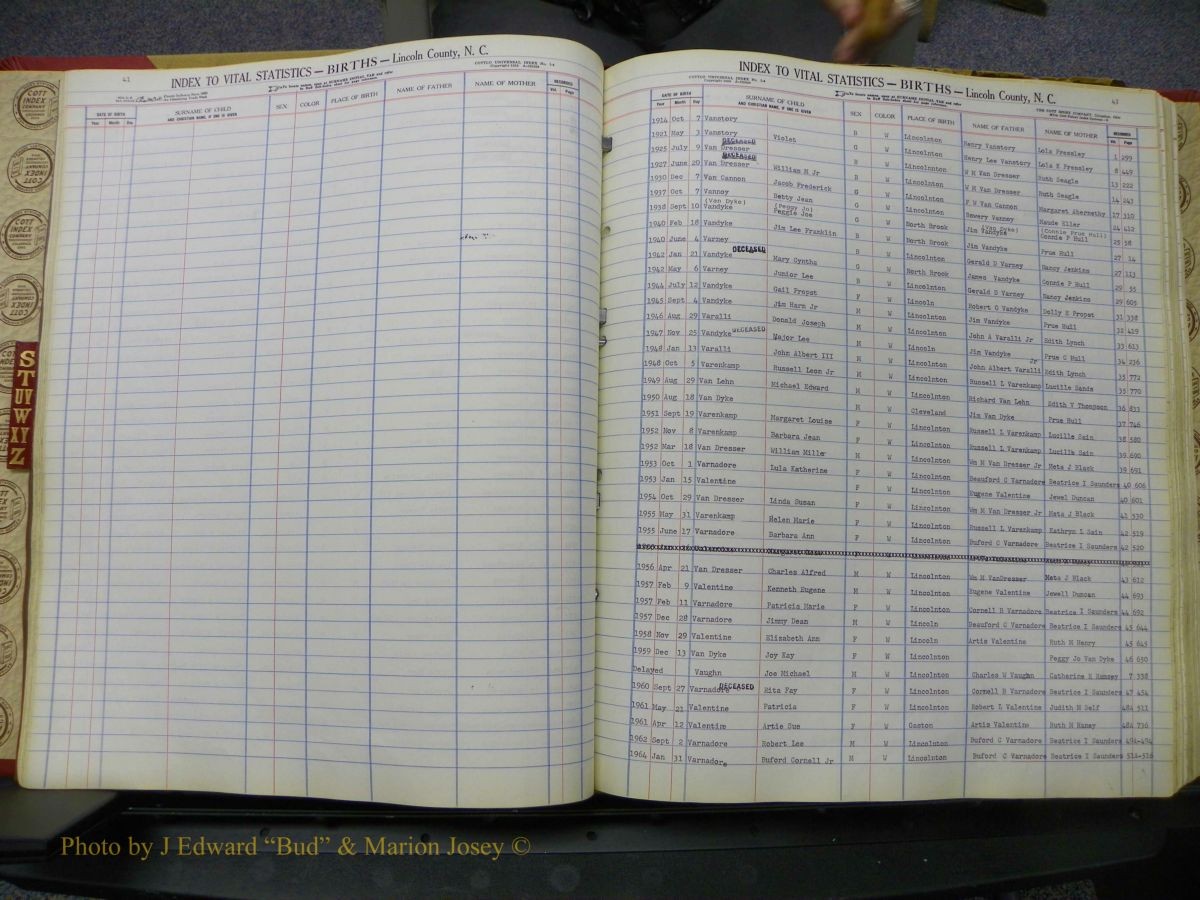 41
INDEX TO VITAL STATISTICS — BIRTHS — Lincoln County, N. C.
COTT'S UNIVERSAL INDEX No. 1-4
DATE OF BIRTH
Year Month Day
SURNAME OF CHILD
AND CHRISTIAN NAME, IF ONE IS GIVEN
SEX COLOR PLACE OF BIRTH NAME OF FATHER NAME OF MOTHER
RECORDED
Vol. Page
COTT INDEX COMPANY
S T U V W X Y Z
INDEX TO VITAL STATISTICS — BIRTHS — Lincoln County, N. C.
43
COTT'S UNIVERSAL INDEX No. 1-4
DATE OF BIRTH
Year Month Day
SURNAME OF CHILD
AND CHRISTIAN NAME, IF ONE IS GIVEN
SEX COLOR PLACE OF BIRTH NAME OF FATHER NAME OF MOTHER
RECORDED
Vol. Page
1914 Oct 7 Vanstory B W Lincolnton Henry Vanstory Lola Pressley 1 299
1921 May 3 Vanstory Violet G W Lincolnton Henry Lee Vanstory Lola K Pressley 8 449
1925 July 9 Van Dresser DECEASED B W Lincolnton W M Van Dresser Ruth Seagle 13 222
1927 June 20 Van Dresser DECEASED William M Jr B W Lincolnton W M Van Dresser Ruth Seagle 14 247
1930 Dec 7 Van Cannon Jacob Frederick B W Lincolnton F W Van Cannon Margaret Abernethy 17 310
1937 Oct 7 Vannoy Betty Jean G W Lincolnton Bewery Vannoy Maude Eller 24 412
1938 Sept 10 Vandyke (Van Dyke) Peggie Joe (Peggy Jo) G W North Brook Jim Vandyke (Van Dyke) Connie P Hull (Connie Prue Hull) 25 58
1940 Feb 18 Vandyke Jim Lee Franklin B W North Brook Jim Vandyke Prue Hull 27 14
1940 June 4 Varney B W Lincolnton Gerald D Varney Nancy Jenkins 27 113
1942 Jan 21 Vandyke DECEASED Mary Cyntha G W North Brook James Vandyke Connie P Hull 29 35
1942 May 6 Varney Junior Lee B W Lincolnton Gerald D Varney Nancy Jenkins 29 605
1944 July 12 Vandyke Gail Propst F W Lincoln Robert G Vandyke Dolly E Propst 31 338
1945 Sept 4 Vandyke Jim Harn Jr M W Lincolnton Jim Vandyke Prue Hull 32 419
1946 Aug 29 Varalli Donald Joseph M W Lincolnton John A Varalli Jr Edith Lynch 33 613
1947 Nov 25 Vandyke DECEASED Major Lee M W Lincoln Jim Vandyke Prue G Hull 34 236
1948 Jan 13 Varalli John Albert III M W Lincolnton John Albert Varalli Jr Edith Lynch 35 772
1948 Oct 5 Varenkamp Russell Leon Jr M W Lincolnton Russell L Varenkamp Lucille Sands 35 770
1949 Aug 29 Van Lehn Michael Edward M W Lincolnton Richard Van Lehn Edith V Thompson 36 833
1950 Aug 18 Van Dyke M W Cleveland Jim Van Dyke Prue Hull 37 746
1951 Sept 19 Varenkamp Margaret Louise F W Lincolnton Russell L Varenkamp Lucille Sain 38 580
1952 Nov 8 Varenkamp Barbara Jean F W Lincolnton Russell L Varenkamp Lucille Sain 39 690
1952 Mar 18 Van Dresser William Miller M W Lincolnton Wm M Van Dresser Jr Meta J Black 39 691
1953 Oct 1 Varnadore Lula Katherine F W Lincolnton Beauford C Varnadore Beatrice I Saunders 40 606
1953 Jan 15 Valentine F W Lincolnton Eugene Valentine Jewel Duncan 40 601
1954 Oct 29 Van Dresser Linda Susan F W Lincolnton Wm M Van Dresser Jr Meta J Black 41 530
1955 May 31 Varenkamp Helen Marie F W Lincolnton Russell L Varenkamp Kathryn L Sain 42 519
1955 June 17 Varnadore Barbara Ann F W Lincolnton Buford C Varnadore Beatrice I Saunders 42 520
1956 Apr 21 Van Dresser Charles Alfred M W Lincolnton Wm M VanDresser Meta J Black 43 612
1957 Feb 9 Valentine Kenneth Eugene M W Lincolnton Eugene Valentine Jewell Duncan 44 693
1957 Feb 11 Varnadore Patricia Marie F W Lincolnton Cornell B Varnadore Beatrice I Saunders 44 692
1957 Dec 28 Varnadore Jimmy Dean M W Lincoln Beauford C Varnadore Beatrice I Saunders 45 644
1958 Nov 29 Valentine Elizabeth Ann F W Lincoln Artis Valentine Ruth M Henry 45 645
1959 Dec 13 Van Dyke Joy Kay F W Lincolnton Peggy Jo Van Dyke 46 650
Delayed Vaughn Joe Michael M W Lincolnton Charles W Vaughn Catherine E Ramsey 7 338
1960 Sept 27 Varnadore DECEASED Rita Fay F W Lincolnton Cornell B Varnadore Beatrice I Saunders 47 454
1961 May 21 Valentine Patricia F W Lincolnton Robert L Valentine Judith M Self 48A 511
1961 Apr 12 Valentine Artie Sue F W Gaston Artis Valentine Ruth M Haney 48A 736
1962 Sept 2 Varnadore Robert Lee M W Lincolnton Buford C Varnadore Beatrice I Saunders 49A-494
1964 Jan 31 Varnadore Buford Cornell Jr M W Lincolnton Buford C Varnadore Beatrice I Saunders 51A-516
Photo by J Edward “Bud” & Marion Josey ©